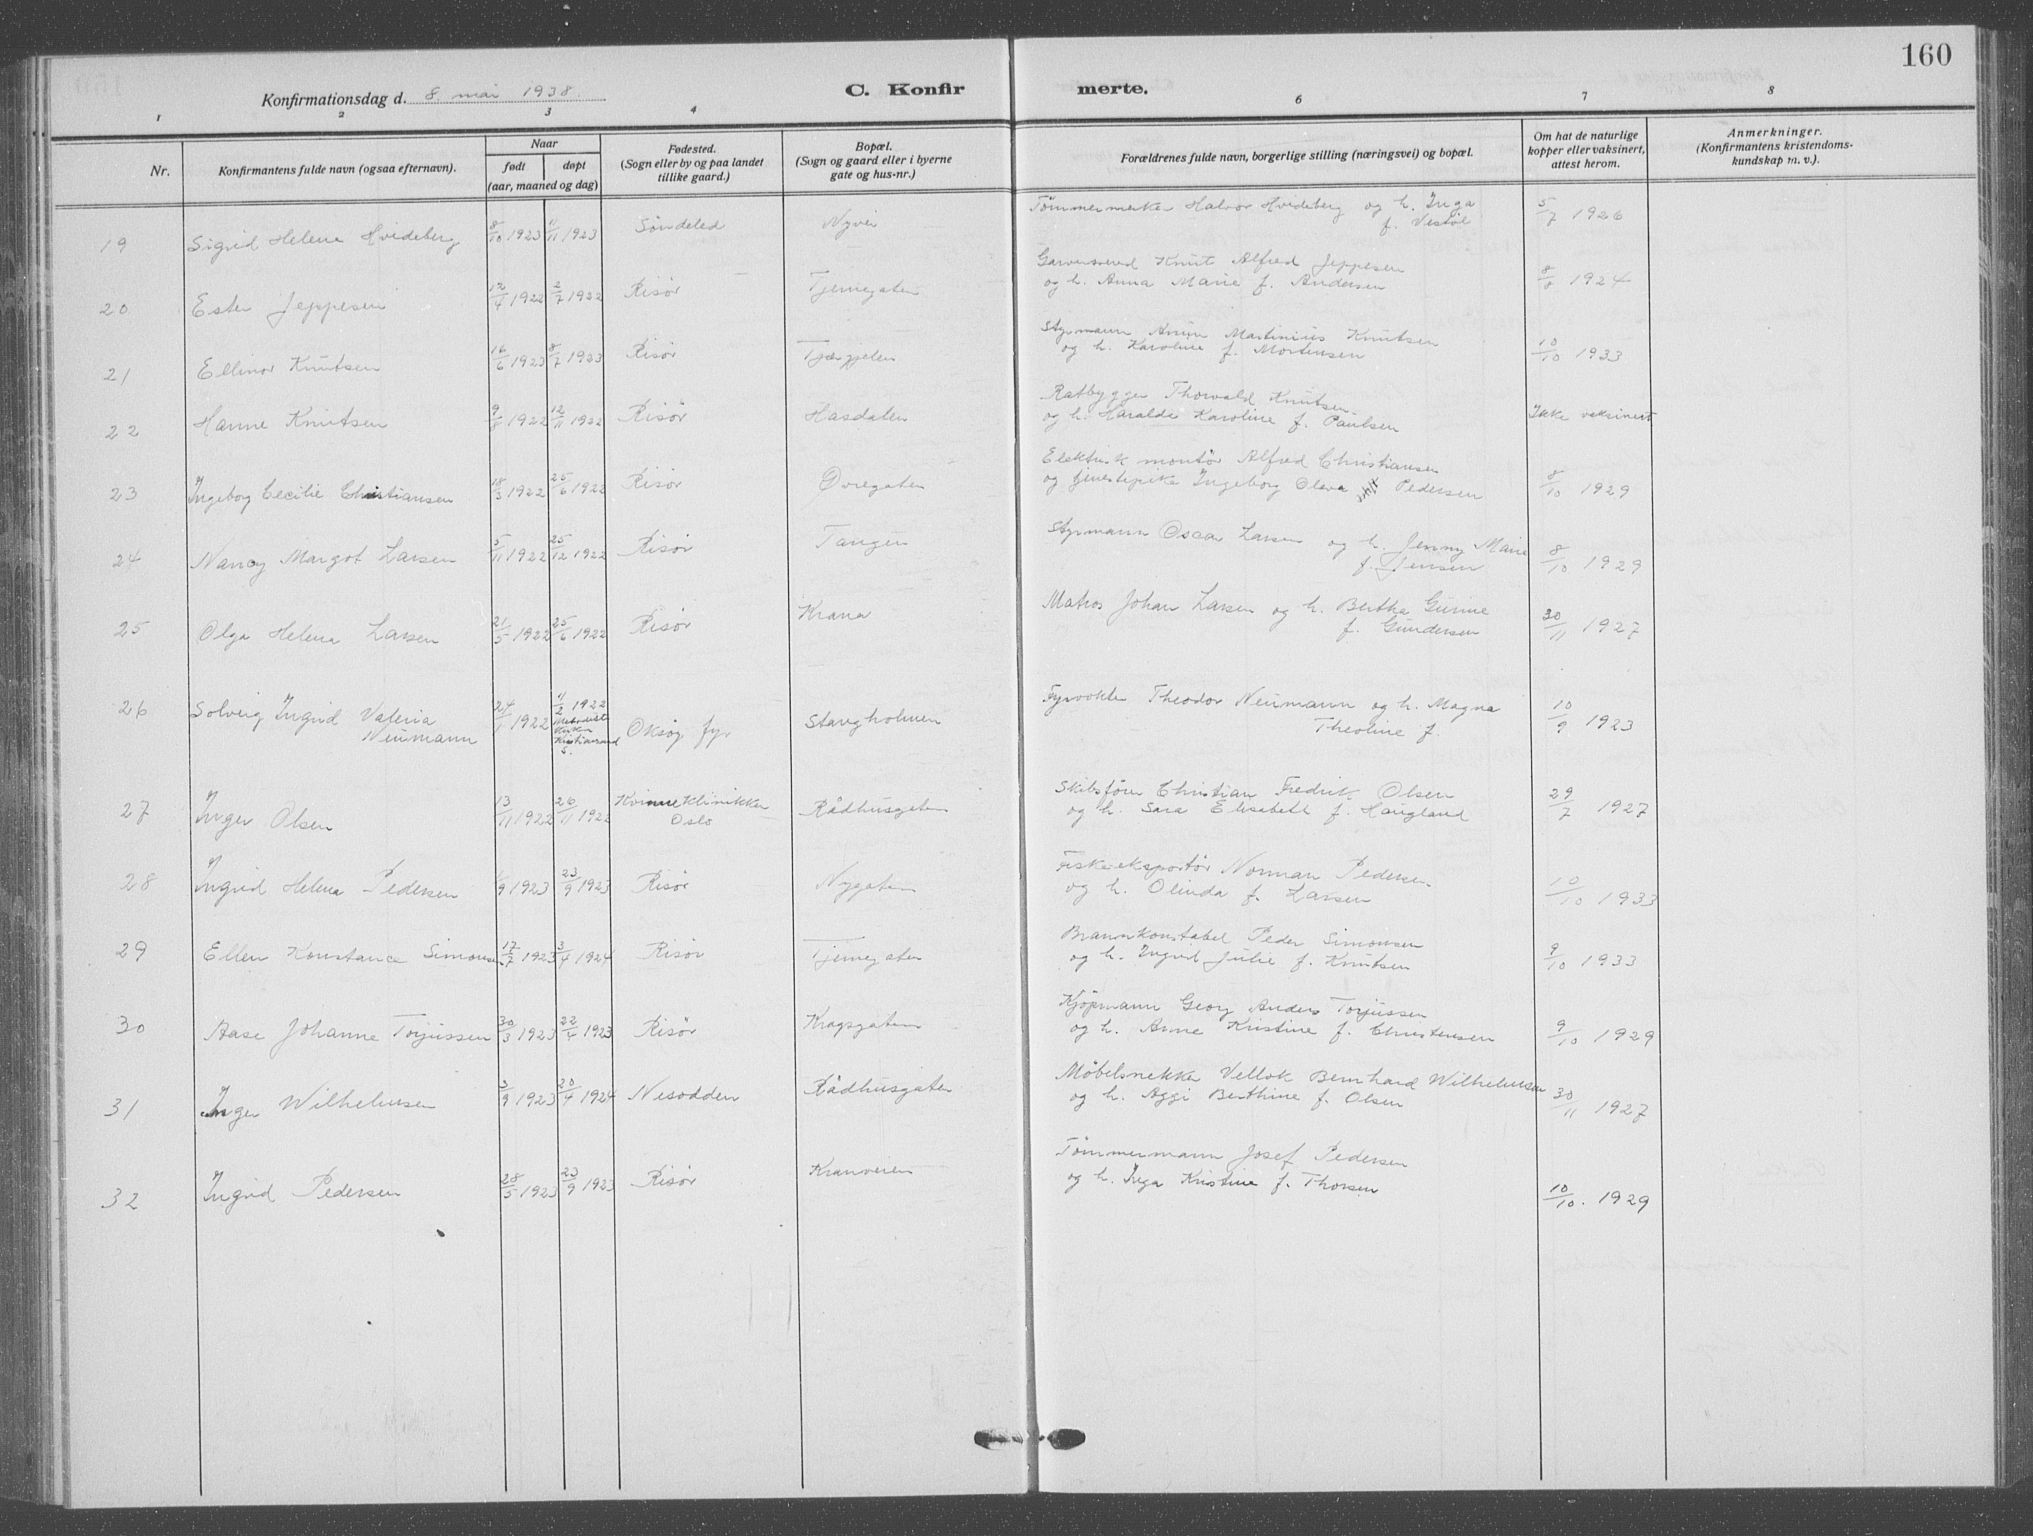 160
Konfirmationsdag d. 8. mai 1938.
C. Konfirmerte.
1 2 3 4 6 7 8
Nr.
Konfirmantens fulde navn (ogsaa efternavn).
Naar
født døpt
(aar, maaned og dag)
Fødested.
(Sogn eller by og paa landet
tillike gaard.)
Bopæl.
(Sogn og gaard eller i byerne
gate og hus-nr.)
Forældrenes fulde navn, borgerlige stilling (næringsvei) og bopæl.
Om hat de naturlige
kopper eller vaksinert,
attest herom.
Anmerkninger.
(Konfirmantens kristendoms-
kundskap m. v.).
19 Sigrid Helene Hvideberg 8/10 1923 11/11 1923 Søndeled Nyvei Tømmermerker Halvor Hvideberg og h. Inga 5/7 1926
f. Vestøl
20 Ester Jeppesen 12/4 1922 2/7 1922 Risør Tjernegaten Garversvend Knut Alfred Jeppesen
og h. Anna Marie f. Andersen 8/8 1924
21 Ellinor Knutsen 16/6 1923 8/7 1923 Risør Styrmann Martinius Knutsen
og h. Karoline f. Mortensen 10/10 1933
22 Hanne Knutsen 1922 12/11 1922 Risør Hasdalen Thorvald Knutsen
og h. Haralda Karoline f. Paulsen Ikke vaksinert
23 Ingeborg Cecilie Christiansen 18/3 1922 25/6 1922 Risør Øvregaten Elektrisk montør Alfred Christiansen
og tjenestepike Ingeborg Oleva Pedersen 8/10 1929
24 Nancy Margot Larsen 5/11 1922 25/12 1922 Risør Tangen Styrmann Oscar Larsen og h. Jenny Marie
f. Jensen 8/10 1929
25 Olga Helena Larsen 21/5 1922 25/6 1922 Risør Krana Matros Johan Larsen og h. Bertha Gurine
f. Gundersen 30/11 1927
26 Solveig Ingrid Valeria
Neumann 24/1 1922 1922
Metodist
kirken
Kristiansand
S. Oksøy fyr Stangholmen Fyrvokter Theodor Neumann og h. Magna
Theoline f. 10/9 1923
27 Inger Olsen 13/11 1922 26/11 1922 Kvinneklinikken
Oslo Rådhusgaten Skibsfører Christian Fredrik Olsen
og h. Sara Elisabeth f. Haugland 29/7 1927
28 Ingrid Helena Pedersen 1/9 1923 23/9 1923 Risør Nygaten Fiskeeksportør Norman Pedersen
og h. Olinda f. Larsen 10/10 1933
29 Ellen Konstance Simonsen 17/7 1923 3/4 1924 Risør Tjernegaten Brannkonstabel Peder Simonsen
og h. Ingrid Julie f. Knutsen 9/10 1933
30 Aase Johanne Torjussen 30/3 1923 22/4 1923 Risør Kragsgaten Kjøpmann Georg Anders Torjussen
og h. Anne Kristine f. Christensen 9/10 1929
31 Inger Wilhelmsen 3/9 1923 20/4 1924 Nesodden Rådhusgaten Møbelsnekker Bernhard Wilhelmsen
og h. Aggi Berthine f. Olsen 30/11 1927
32 Ingrid Pedersen 28/5 1923 23/9 1923 Risør Kranveien Tømmermann Josef Pedersen
og h. Inga Kristine f. Thorsen 10/10. 1929